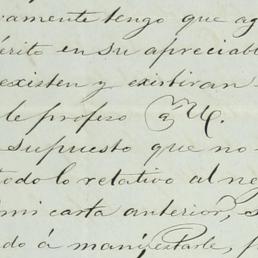 ramente tengo que ag
érito en su apreciab
existen y existiran
le profeso á V.
supuesto que no
todo lo relativo al ne
mi carta anterior, s
do á manifestarle, p